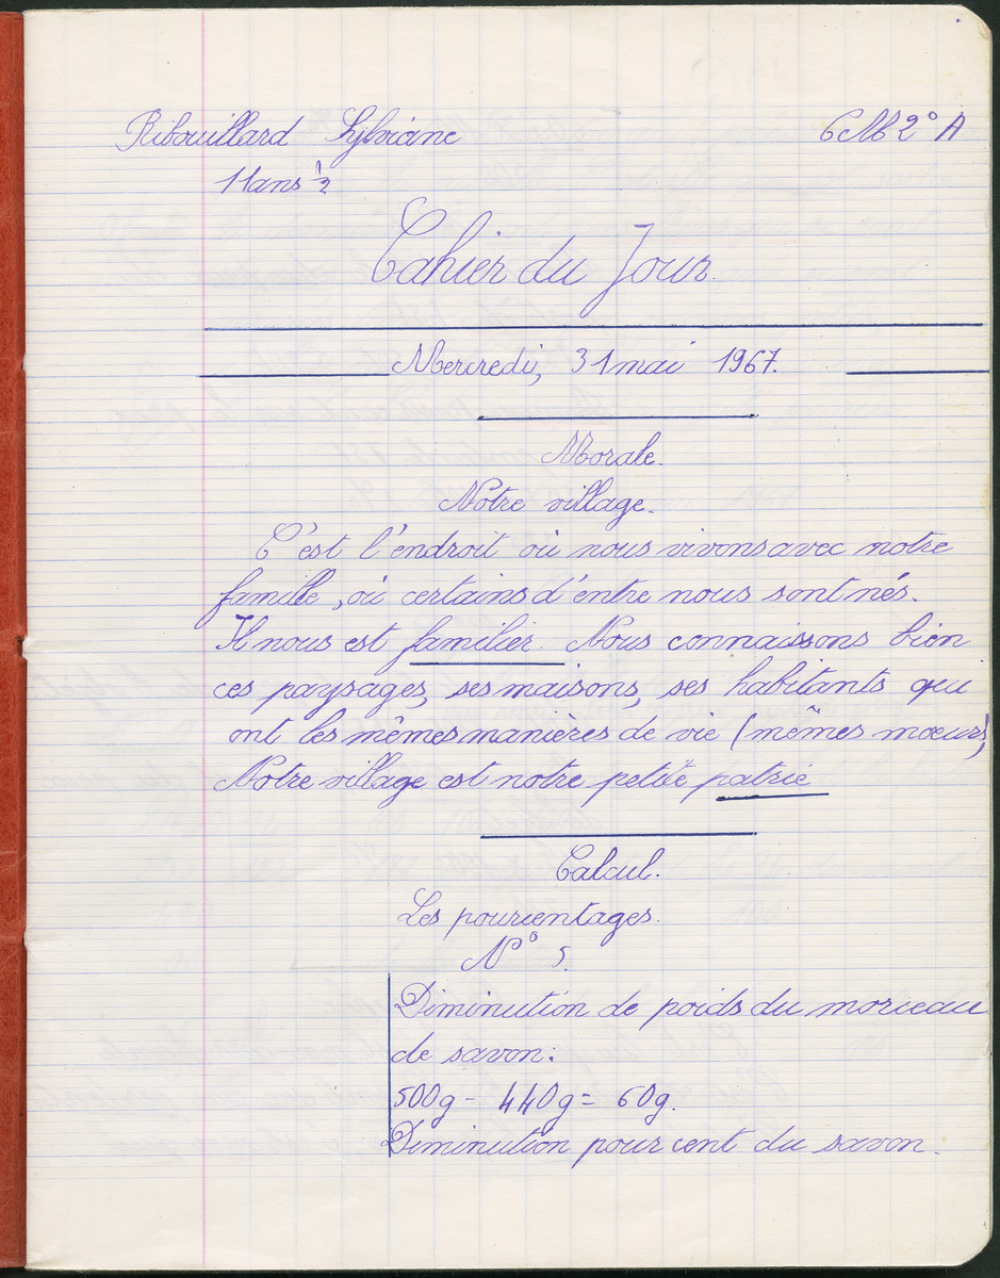 Ribouillard Sylviane CM2° A
11 ans 1/2
Cahier du Jour.
Mercredi, 31 mai 1967.
Morale.
Notre village.
C'est l'endroit où nous vivons avec notre
famille, où certains d'entre nous sont nés.
Il nous est familier. Nous connaissons bien
ces paysages, ses maisons, ses habitants qui
ont les mêmes manières de vie (mêmes mœurs)
Notre village est notre petite patrie
Calcul.
Les pourcentages.
N° 5.
Diminution de poids du morceau
de savon:
500g - 440g = 60g.
Diminution pour cent du savon.